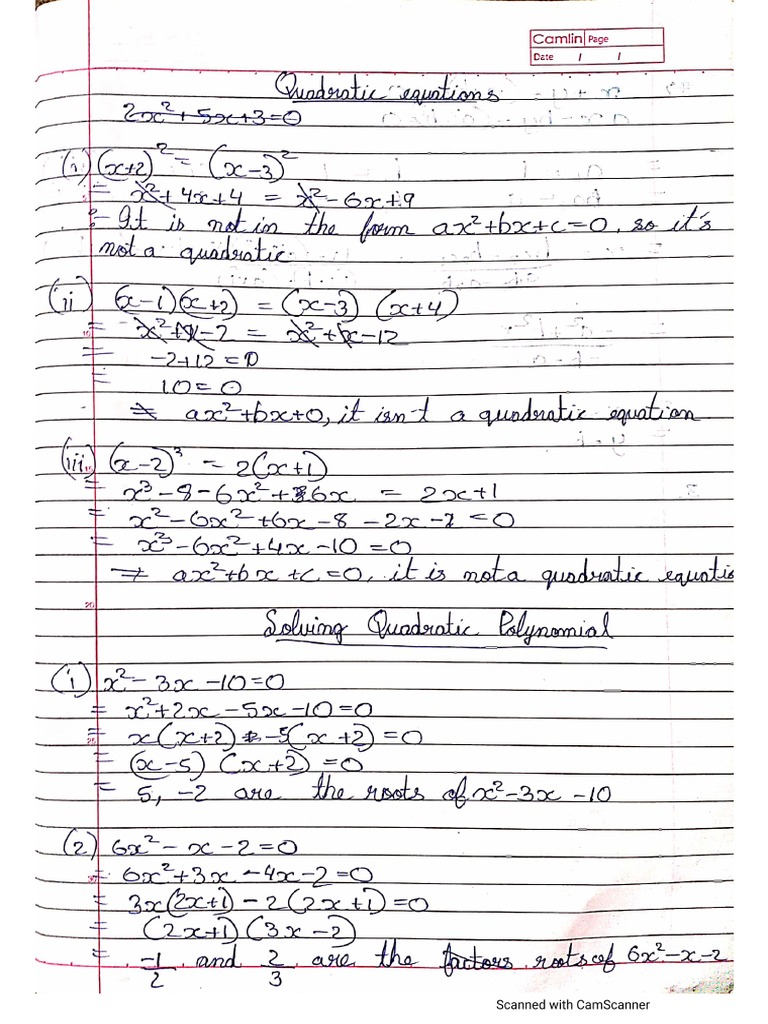 Camlin Page
Date / /
Quadratic equations
2x² + 5x + 3 = 0
(i) (x+2)² = (x-3)²
= x² + 4x + 4 = x² - 6x + 9
- It is not in the form ax² + bx + c = 0, so it's
not a quadratic.
(ii) (x-1)(x+2) = (x-3) (x+4)
= x² + x - 2 = x² + x - 12
= -2 + 12 = 0
= 10 = 0
≠ ax² + bx + 0, it isn't a quadratic equation
(iii) (x-2)³ = 2(x+1)
= x³ - 8 - 6x² + 6x = 2x + 1
= x² - 6x² + 6x - 8 - 2x - 2 = 0
= x³ - 6x² + 4x - 10 = 0
≠ ax² + bx + c = 0, it is not a quadratic equatio
20
Solving Quadratic Polynomial
(1) x² - 3x - 10 = 0
= x² + 2x - 5x - 10 = 0
= x(x+2) - 5(x+2) = 0
= (x-5) (x+2) = 0
= 5, -2 are the roots of x² - 3x - 10
(2) 6x² - x - 2 = 0
= 6x² + 3x - 4x - 2 = 0
= 3x(2x+1) - 2(2x+1) = 0
= (2x+1) (3x-2)
= -1/2 and 2/3 are the factors roots of 6x² - x - 2
Scanned with CamScanner